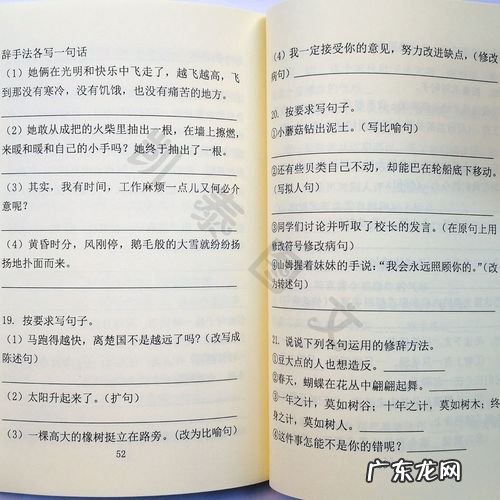 辞手法各写一句话
（1）她俩在光明和快乐中飞走了，越飞越高，飞
到那没有寒冷，没有饥饿，也没有痛苦的地方。
（2）她敢从成把的火柴里抽出一根，在墙上擦燃，
来暖和暖和自己的小手吗？她终于抽出了一根。
（3）其实，我有时间，工作麻烦一点儿又何必介
意呢？
（4）黄昏时分，风刚停，鹅毛般的大雪就纷纷扬
扬地扑面而来。
19. 按要求写句子。
（1）马跑得越快，离楚国不是越远了吗？（改写成
陈述句）
（2）太阳升起来了。（扩句）
（3）一棵高大的橡树挺立在路旁。（改为比喻句）
52
（4）我一定接受你的意见，努力改进缺点，（修改
病句）
20. 按要求写句子。
①小蘑菇钻出泥土。（写比喻句）
②还有些贝类自己不动，却能巴在轮船底下移动。
（写拟人句）
③同学们讨论并听取了校长的发言。（在原句上用
修改符号修改病句）
④山娃握着妹妹的手说：“我会永远照顾你的。”（改
为转述句）
21. 说说下列各句运用的修辞方法。
①豆大点的人也想造反。
②春天，蝴蝶在花丛中翩翩起舞。
③一年之计，莫如树谷；十年之计，莫如树木；终
身之计，莫如树人。
④这件事怎能不是你的错呢？
凯泰图文
广东龙网